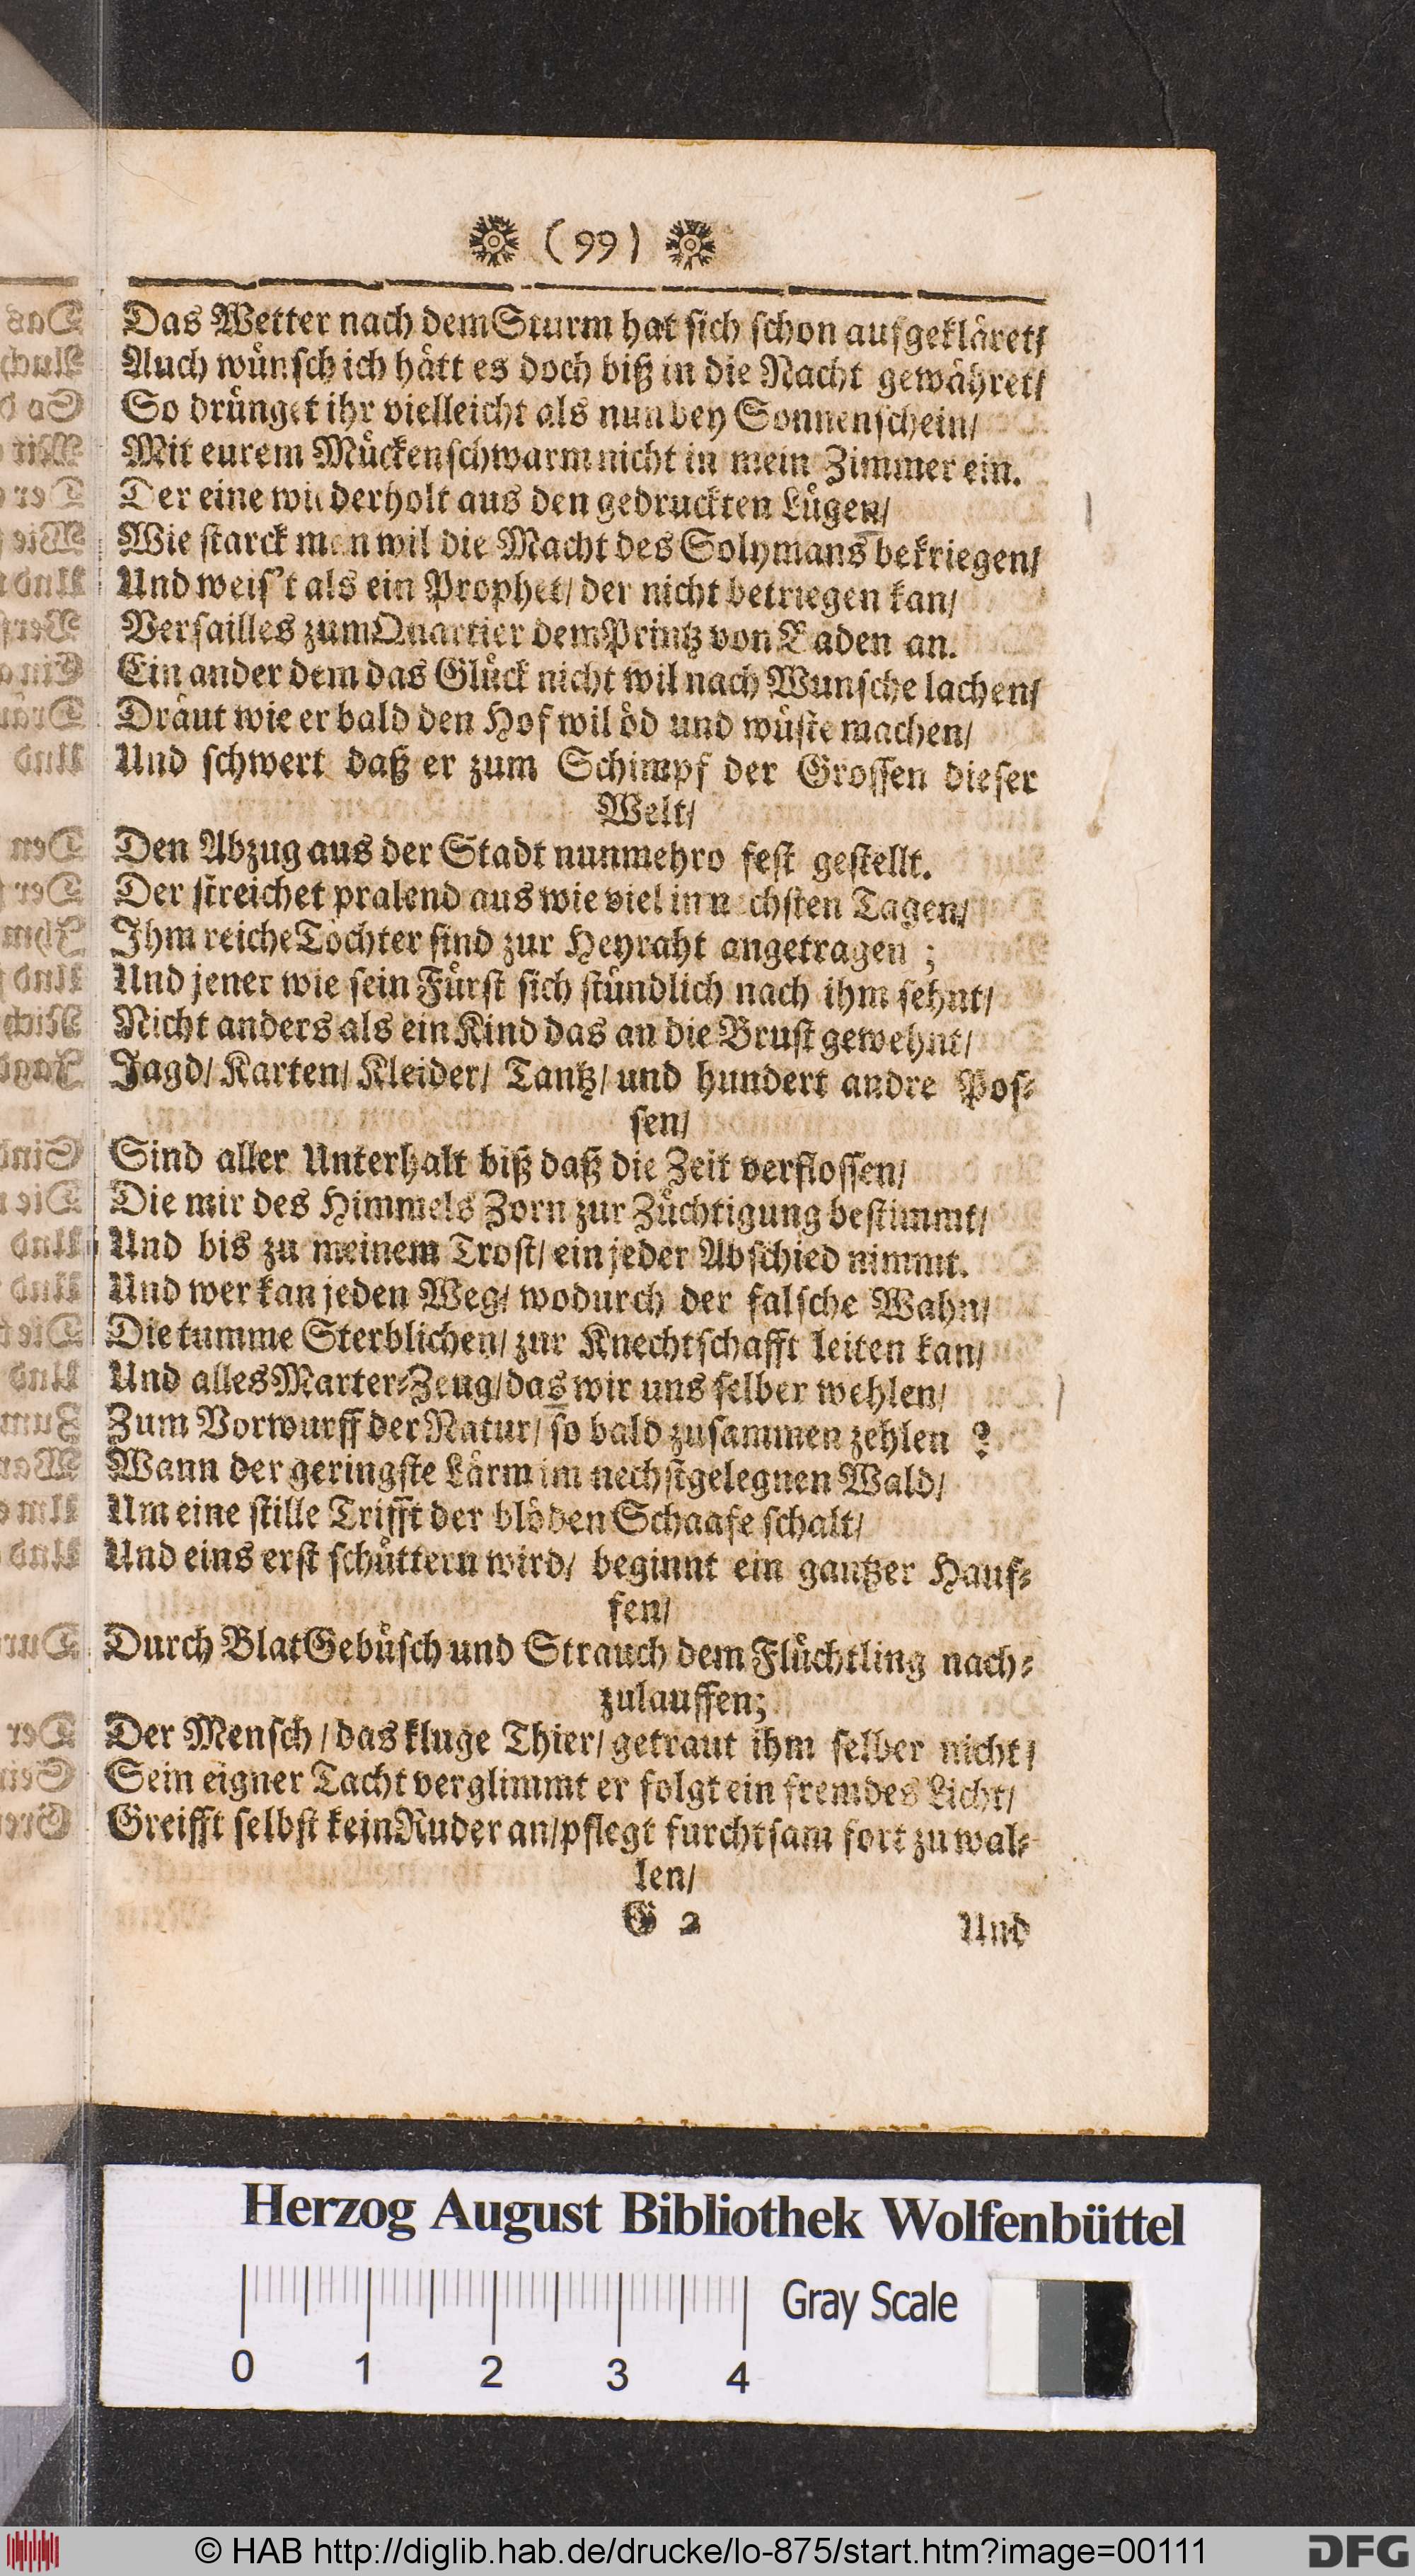 (99)
Das Wetter nach dem Sturm hat sich schon aufgekläret/
Auch wünsch ich hätt es doch biß in die Nacht gewähret/
So drünget ihr vielleicht als nun bey Sonnenschein/
Mit eurem Mückenschwarm nicht in mein Zimmer ein.
Der eine wiederholt aus den gedruckten Lügen/
Wie starck man wil die Macht des Solymans bekriegen/
Und weis't als ein Prophet/ der nicht betriegen kan/
Versailles zum Quartier dem Printz von Baden an.
Ein ander dem das Glück nicht wil nach Wunsche lachen/
Dräut wie er bald den Hof wil öd und wüste machen/
Und schwert daß er zum Schimpf der Grossen dieser
Welt/
Den Abzug aus der Stadt nunmehro fest gestellt.
Der streichet pralend aus wie viel in nechsten Tagen/
Ihm reiche Töchter sind zur Heyraht angetragen ;
Und jener wie sein Fürst sich stündlich nach ihm sehnt/
Nicht anders als ein Kind das an die Brust gewehnt/
Jagd/ Karten/ Kleider/ Tantz/ und hundert andre Pos-
sen/
Sind aller Unterhalt biß daß die Zeit verflossen/
Die mir des Himmels Zorn zur Züchtigung bestimmt/
Und bis zu meinem Trost/ ein jeder Abschied nimmt.
Und wer kan jeden Weg/ wodurch der falsche Wahn/
Die tumme Sterblichen/ zur Knechtschafft leiten kan/
Und alles Marter-Zeug/ das wir uns selber wehlen/
Zum Vorwurff der Natur/ so bald zusammen zehlen ?
Wann der geringste Lärm im nechstgelegnen Wald/
Um eine stille Trifft der blöden Schaafe schalt/
Und eins erst schüttern wird/ beginnt ein gantzer Hauf-
fen/
Durch Blat Gebüsch und Strauch dem Flüchtling nach-
zulauffen;
Der Mensch / das kluge Thier/ getraut ihm selber nicht/
Sein eigner Tacht verglimmt er folgt ein fremdes Licht/
Greifft selbst kein Ruder an/ pflegt furchtsam fort zu wal-
len/
G 2 Und
Herzog August Bibliothek Wolfenbüttel
Gray Scale
0 1 2 3 4
© HAB http://diglib.hab.de/drucke/lo-875/start.htm?image=00111
DFG